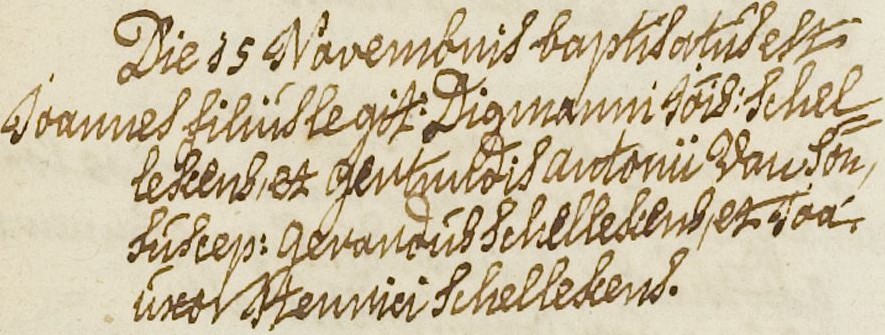 Die 15 Novembris baptisatus est
Joannes filius legit: Digmanni Jois: Schel=
lekens, et Gertrudis Antonii Van Son,
suscep: Gerardus Schellekens, et Joa
uxor Henrici Schellekens.